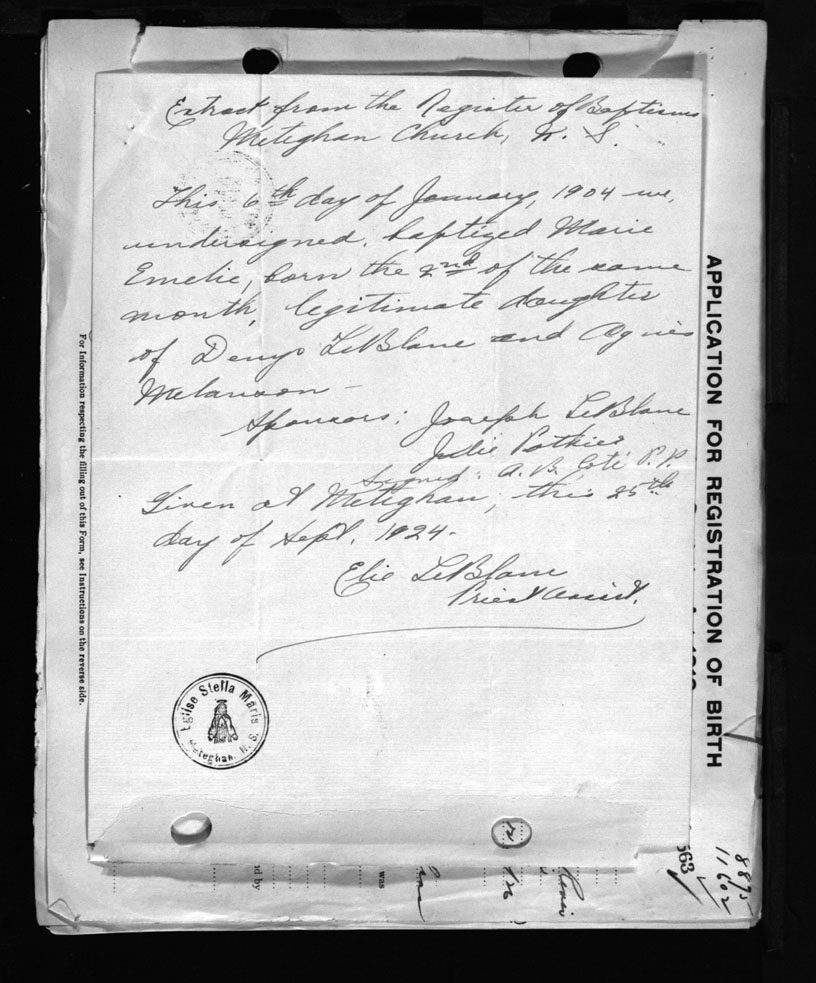 Extract from the Register of Baptisms
Meteghan Church, N. S.
This 6th day of January, 1904 we,
undersigned, baptized Marie
Emelie, born the 2nd of the same
month, legitimate daughter
of Denys LeBlanc and Agnes
Melanson -
Sponsors: Joseph LeBlanc
Julie Pothier
Signed: A. B. Coté P. P.
Given at Meteghan, this 25th
day of Sept. 1924.
Elie LeBlanc
Priest Assist.
Eglise Stella Maris
Meteghan, N. S.
APPLICATION FOR REGISTRATION OF BIRTH
For Information respecting the filling out of this Form, see Instructions on the reverse side.
nd by
was
563
8895
11602